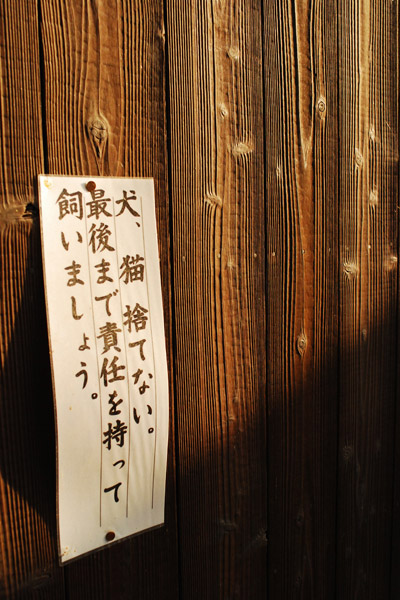 犬、猫捨てない。
最後まで責任を持って
飼いましょう。